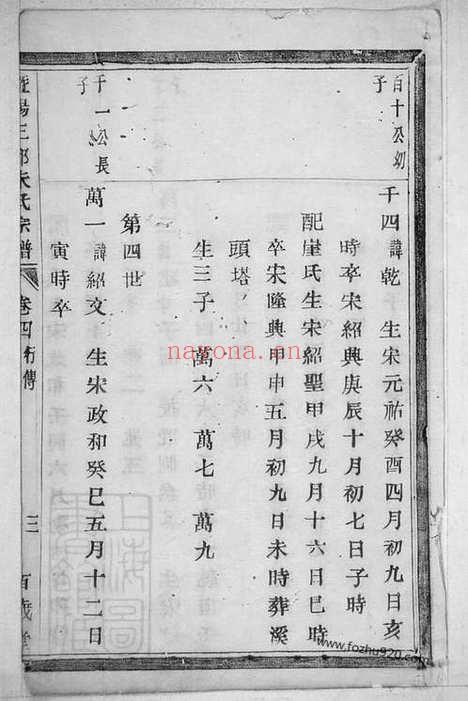 百十公幼子
千四 諱乾 生宋元祐癸酉四月初九日亥
時卒宋紹興庚辰十月初七日子時
配崖氏生宋紹聖甲戌九月十六日巳時
卒宋隆興甲申五月初九日未時葬溪
頭塔
生三子 萬六 萬七 萬九
第四世
千一公長子
萬一 諱紹文 生宋政和癸巳五月十二日
寅時卒
暨陽王郎朱氏宗譜 卷四 行傳 三 百歲堂
上海圖書館
nayona.cn
www.fozhu920.com